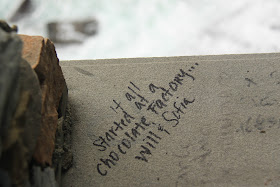 it all
started at a
chocolate Factory...
Will & Sofia